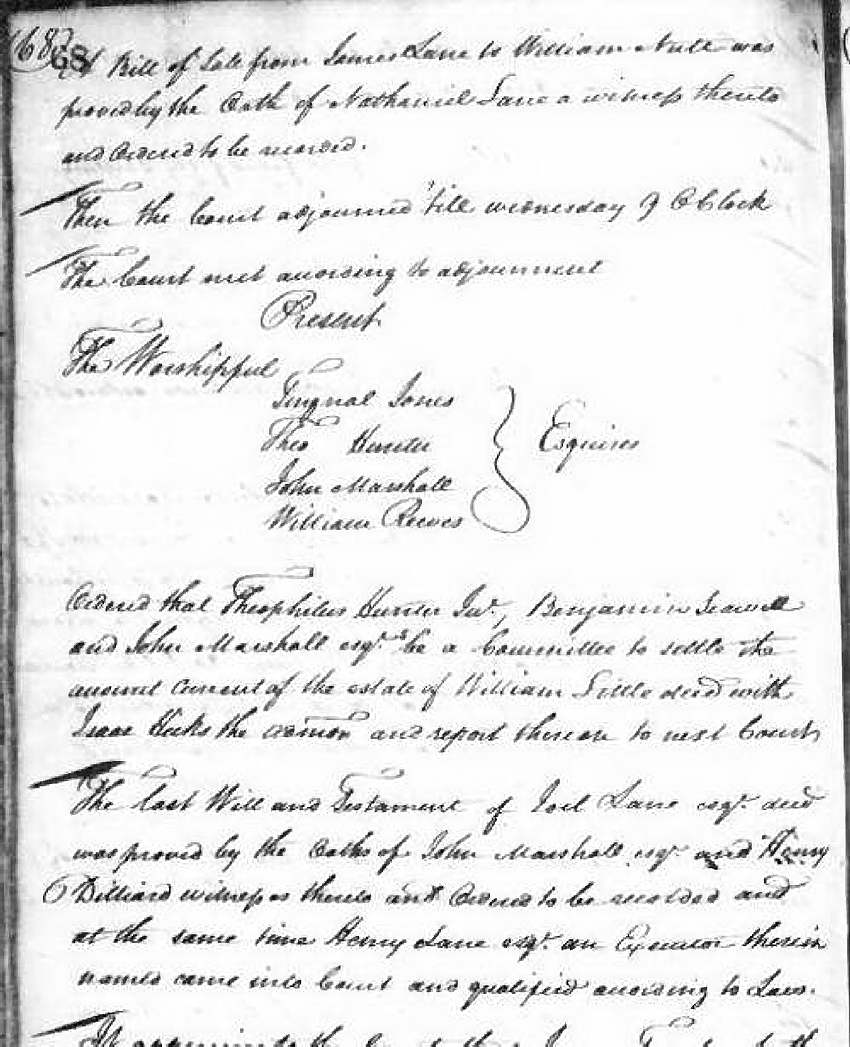 (68)
68
A Bill of Sale from James Lane to William Nutt was
proved by the Oath of Nathaniel Lane a witness thereto
and Ordered to be recorded.
Then the Court adjourned 'till wednesday 9 OClock
The Court met according to adjournment
Present
The Worshipful
Tingnal Jones
Theo Hunter
John Marshall
William Reeves
Esquires
Ordered that Theophilus Hunter Junr., Benjamin Seawell
and John Marshall esqrs. be a Committee to settle the
account Current of the estate of William Little decd with
Isaac Hicks the admon and report thereon to next Court
The last Will and Testament of Joel Lane esqr. decd
was proved by the Oaths of John Marshall esqr. and Henry
Dilliard witnesses thereto and Ordered to be recorded and
at the same time Henry Lane esqr. an Executor therein
named came into Court and qualified according to Law.
It appearing to the